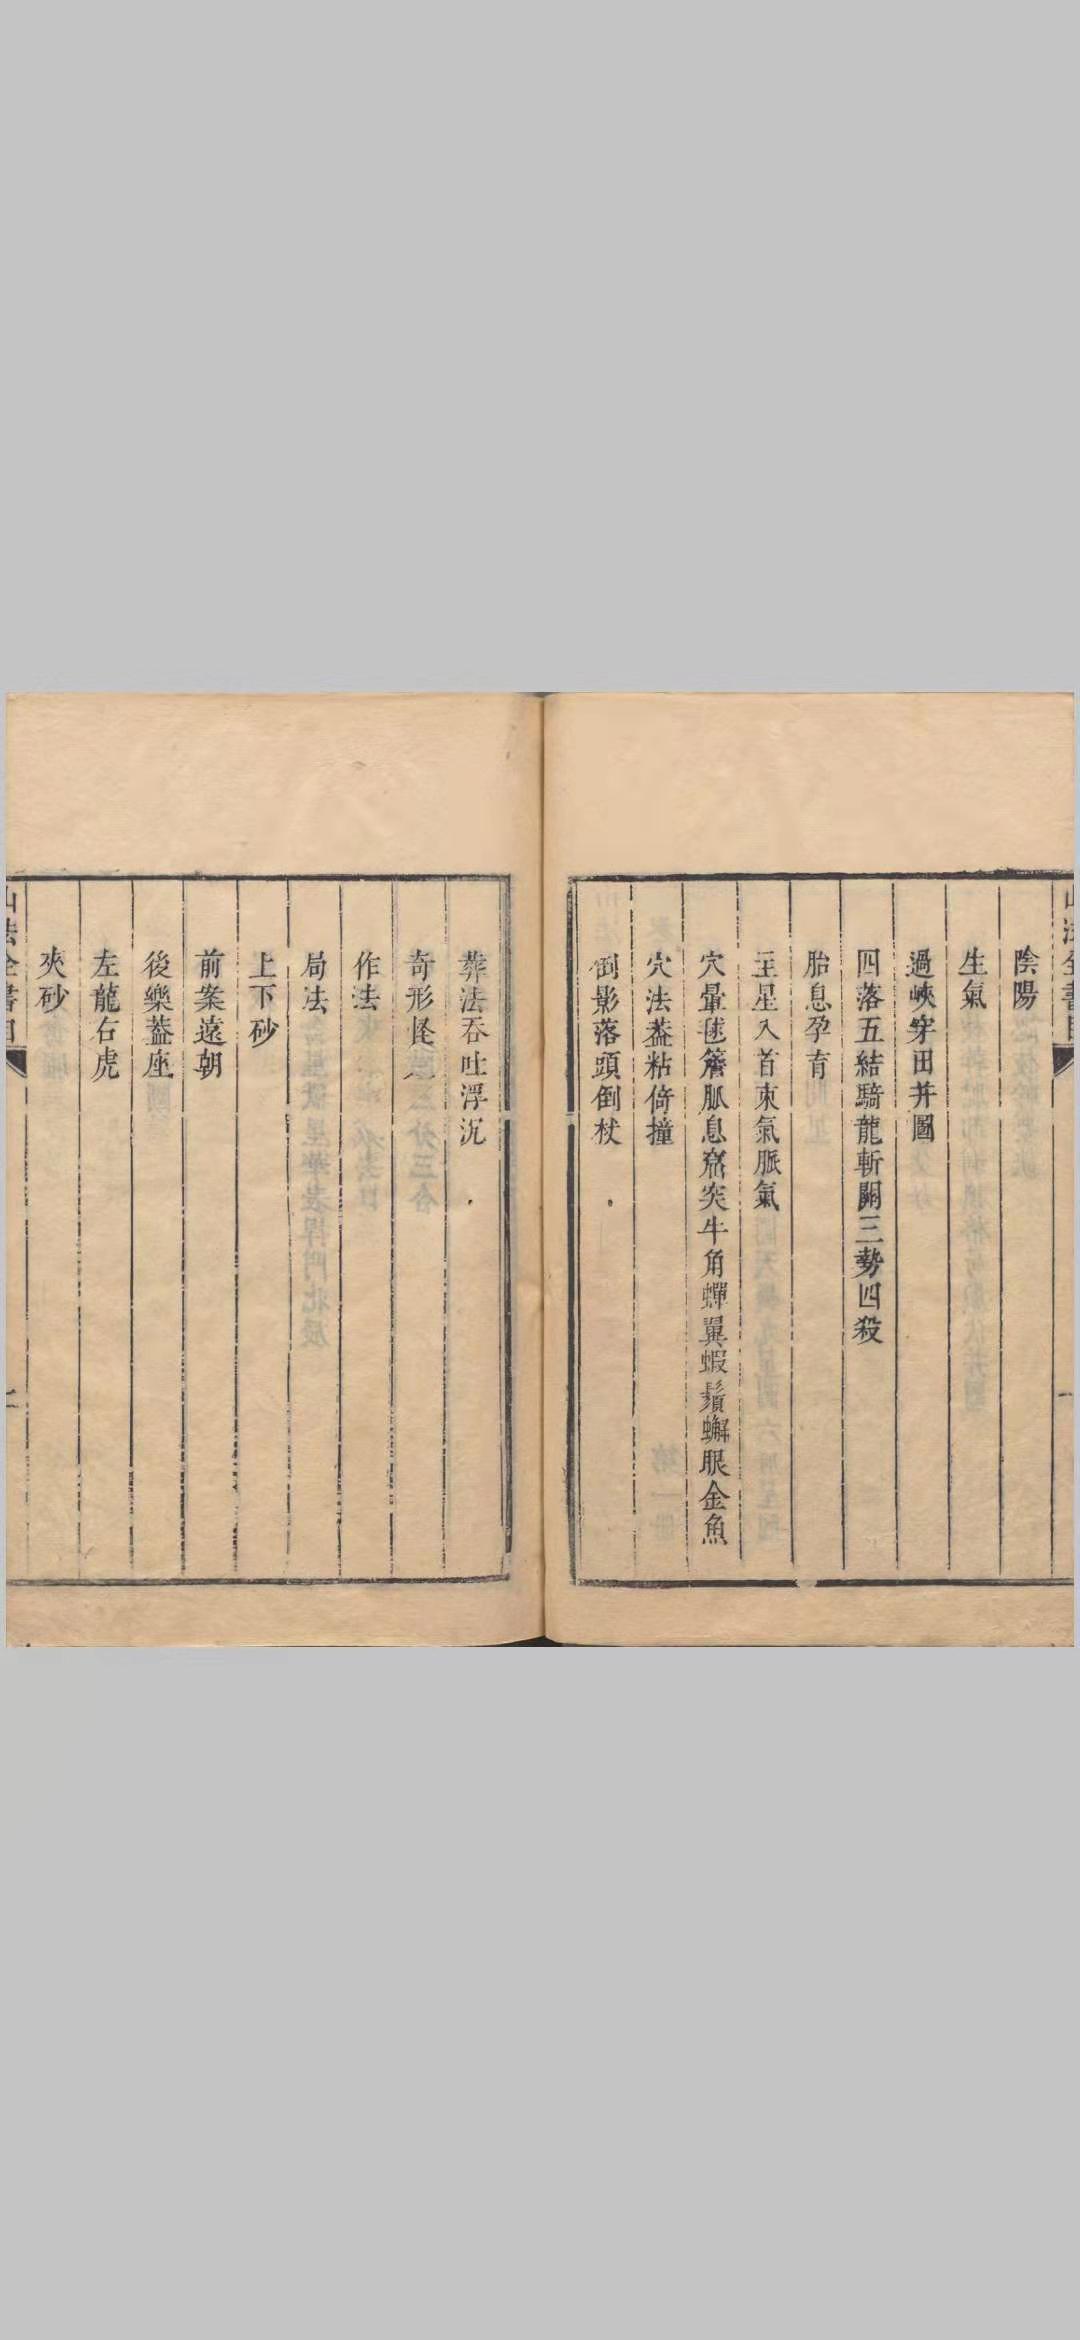 山法全書目
陰陽
生氣
過峽穿田并圖
四落五結騎龍斬關三勢四殺
胎息孕育
主星入首束氣脈氣
穴暈毬簷胍息窩突牛角蟬翼蝦鬚蠏眼金魚
穴法葢粘倚撞
倒影落頭倒杖
葬法吞吐浮沉
奇形怪穴
作法
局法
上下砂
前案遠朝
後樂葢座
左龍右虎
夾砂
山法全書目